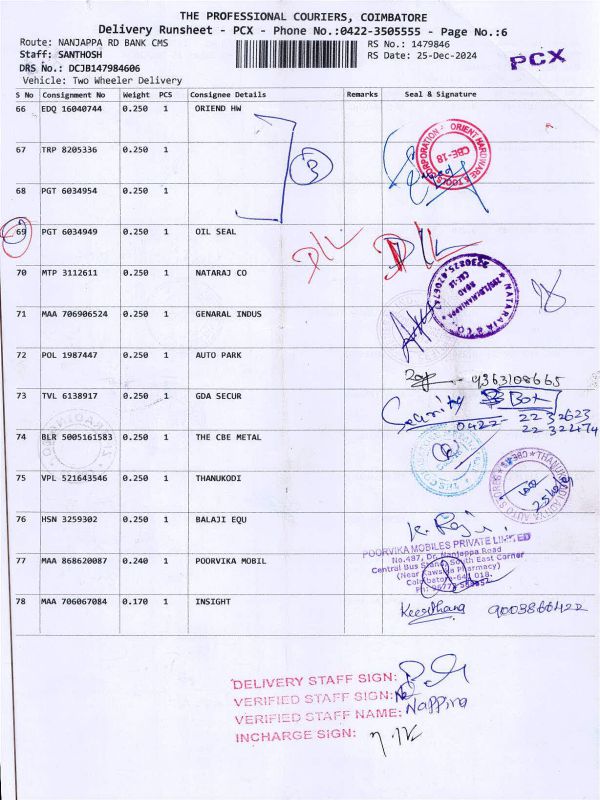 THE PROFESSIONAL COURIERS, COIMBATORE
Delivery Runsheet - PCX - Phone No.:0422-3505555 - Page No.:6
Route: NANJAPPA RD BANK CMS
RS No.: 1479846
Staff: SANTHOSH
RS Date: 25-Dec-2024
PCX
DRS No.: DCJB147984606
Vehicle: Two Wheeler Delivery
S No Consignment No Weight PCS Consignee Details Remarks Seal & Signature
66 EDQ 16040744 0.250 1 ORIEND HW
67 TRP 8205336 0.250 1
3
ORIENT HARDWARE & TOOLS CORPORATION
CBE-18
68 PGT 6034954 0.250 1
69 PGT 6034949 0.250 1 OIL SEAL
D/L D/L
70 MTP 3112611 0.250 1 NATARAJ CO
NATARAJA & CO.
ROAD
CBE-18
71 MAA 706906524 0.250 1 GENARAL INDUS
72 POL 1987447 0.250 1 AUTO PARK
9363108665
73 TVL 6138917 0.250 1 GDA SECUR
Security
0422- 2232623
2232474
74 BLR 5005161583 0.250 1 THE CBE METAL
75 VPL 521643546 0.250 1 THANUKODI
76 HSN 3259302 0.250 1 BALAJI EQU
K. Raji
77 MAA 868620087 0.240 1 POORVIKA MOBIL
POORVIKA MOBILES PRIVATE LIMITED
No.487, Dr. Nanjappa Road
Central Bus Stand, South East Corner
(Near Kawsalya Pharmacy)
Coimbatore-641 018.
78 MAA 706067084 0.170 1 INSIGHT
Keerthana 9003866422
DELIVERY STAFF SIGN:
VERIFIED STAFF SIGN:
VERIFIED STAFF NAME:
INCHARGE SIGN: